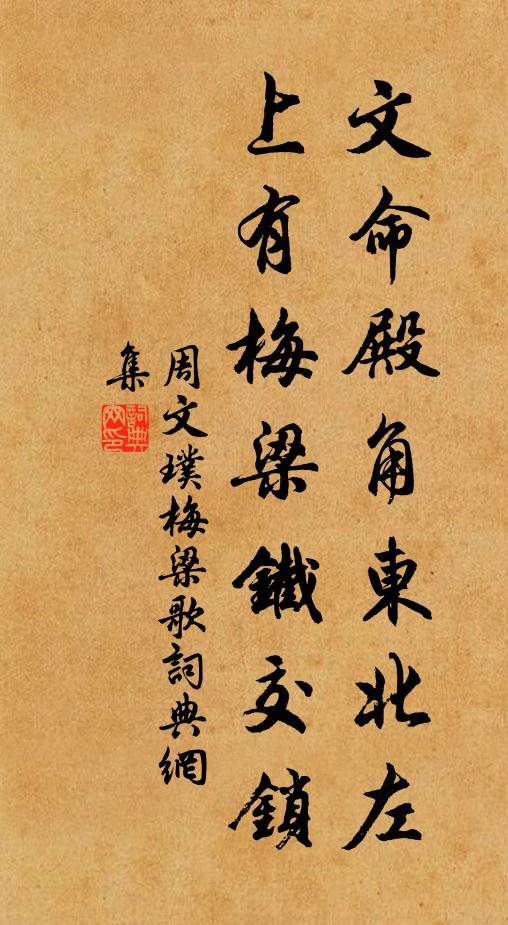 文命殿角東北左
上有梅梁鐵交鎖
周文璞梅梁歌詞典網
集
詞典
網印